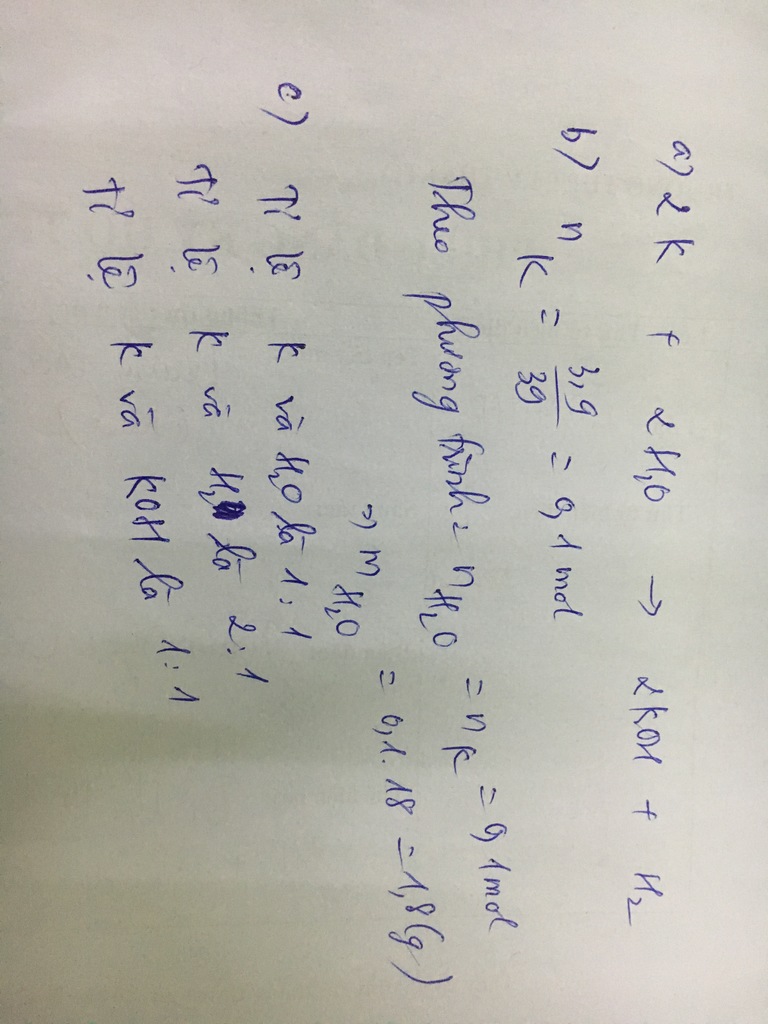 a) 2K + 2H₂O → 2KOH + H₂
b) n_K = 3,9/39 = 0,1 mol
Theo phương trình: n_H₂O = n_K = 0,1 mol
=> m_H₂O = 0,1.18 = 1,8 (g)
c) Tỉ lệ K và H₂O là 1:1
Tỉ lệ K và H₂ là 2:1
Tỉ lệ K và KOH là 1:1